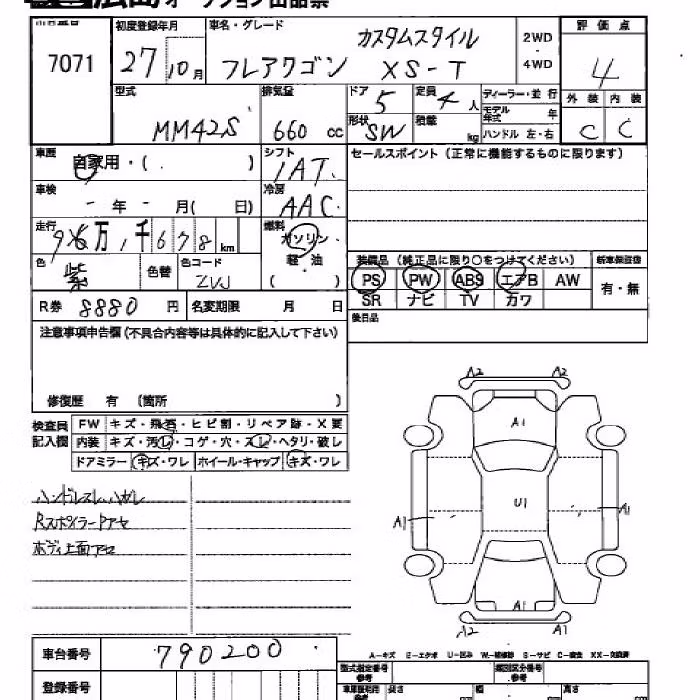 広島オークション出品票
出品番号 初度登録年月 車名・グレード カスタムスタイル 2WD・4WD 評価点
7071 27 10月 フレアワゴン XS-T 4
型式 排気量 ドア 5 定員 4人 ディーラー・並行 外装 内装
MM42S 660 cc 形状 SW 積載 kg モデル年式 年 ハンドル 左・右 C C
車歴 自家用・( ) シフト 1AT. セールスポイント(正常に機能するものに限ります)
車検 - 年 - 月( 日) 冷房 AAC
走行 9万 1千678 km 燃料 ガソリン・軽・油 ( )
装備品(純正品に限り○をつけてください) 新車保証書
色 紫 色替 色コード ZVJ PS PW ABS エアB AW 有・無
R券 8880 円 名変期限 月 日 SR ナビ TV カワ
注意事項申告欄(不具合内容等は具体的に記入して下さい) 後日品
修復歴 有(箇所 )
検査員記入欄 FW キズ・飛石・ヒビ割・リペア跡・X要
内装 キズ・汚レ・コゲ・穴・スレ・ヘタリ・破レ
ドアミラー キズ・ワレ ホイール・キャップ キズ・ワレ
ハンドルスレ ハガレ
Rスポイラートアセ
ボディ上面アセ
A2 A2
A1
U1
A1 A1
A1
A2 A1
A-キズ E-エクボ U-凹み W-補修跡 S-サビ C-腐食 XX-交換済
車台番号 790200
登録番号
型式指定番号 参考 類別区分番号 参考
長さ 幅 高さ